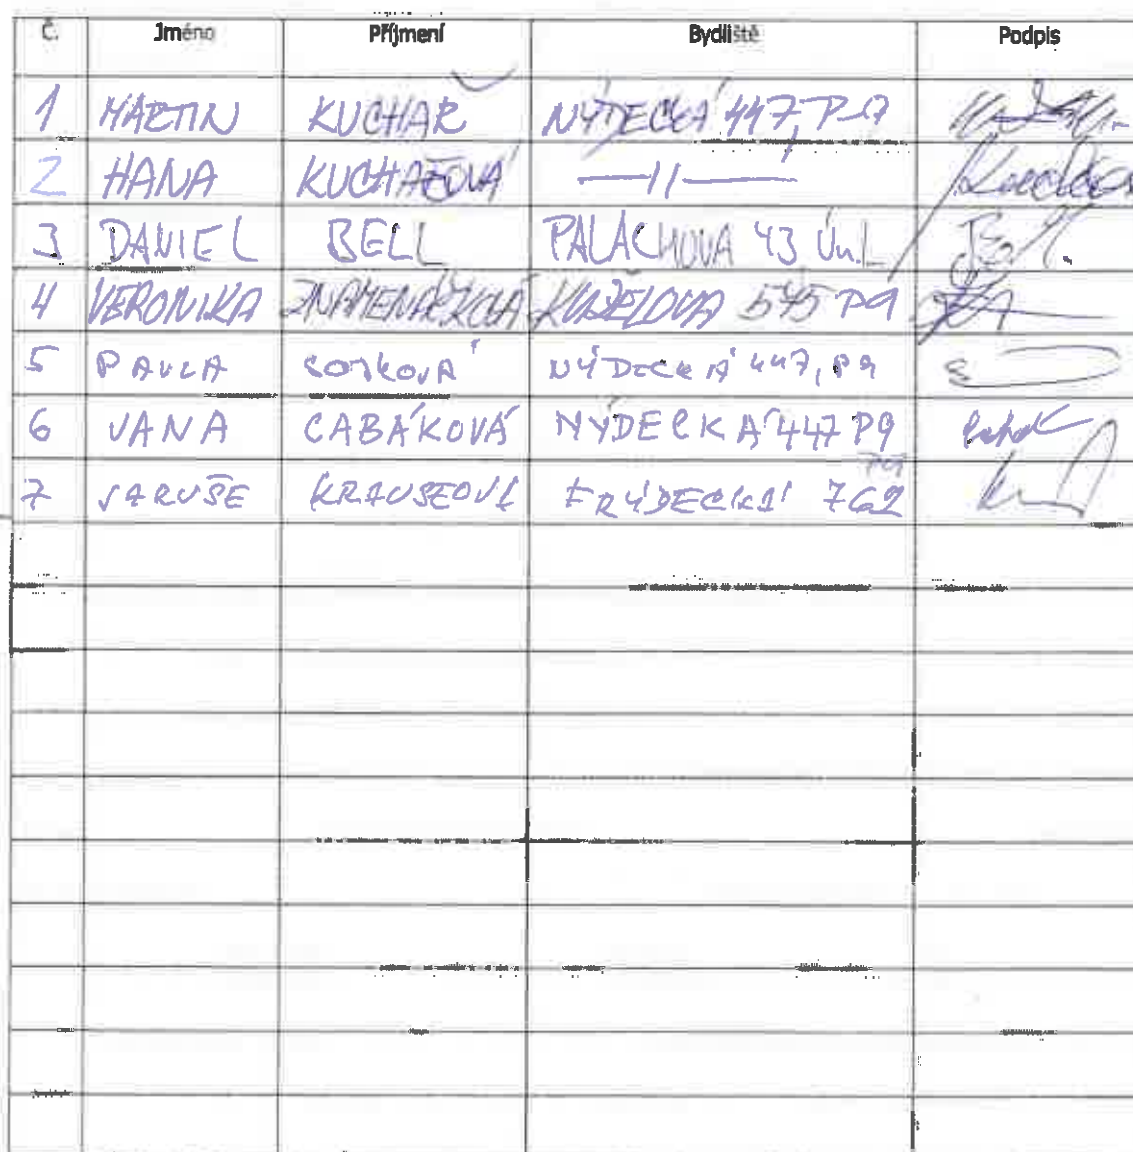 Č. Jméno Příjmení Bydliště Podpis
1 MARTIN KUCHAŘ NÝDECKÁ 447, P-9
2 HANA KUCHAŘOVÁ —11—
3 DANIEL BELL PALACHOVA 43 Ún.L
4 VERONIKA ZNAMENÁČKOVÁ 545 P9
5 PAVLA NÝDECKÁ 447, P9
6 JANA CABÁKOVÁ NÝDECKÁ 447 P9
7 JARUŠE KRAUSEOVÁ FRÝDECKÁ 762